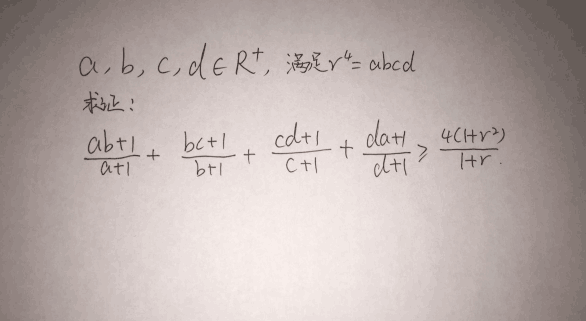 a, b, c, d ∈ R⁺, 满足r⁴= abcd
求证:
(ab+1)/(a+1) + (bc+1)/(b+1) + (cd+1)/(c+1) + (da+1)/(d+1) ≥ 4(1+r²)/(1+r).